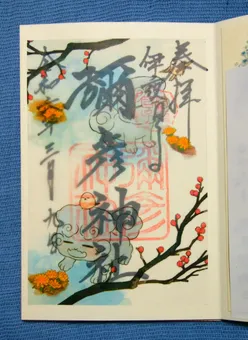 奉拝
伊夜日子
彌彦神社
令和 年三月九日